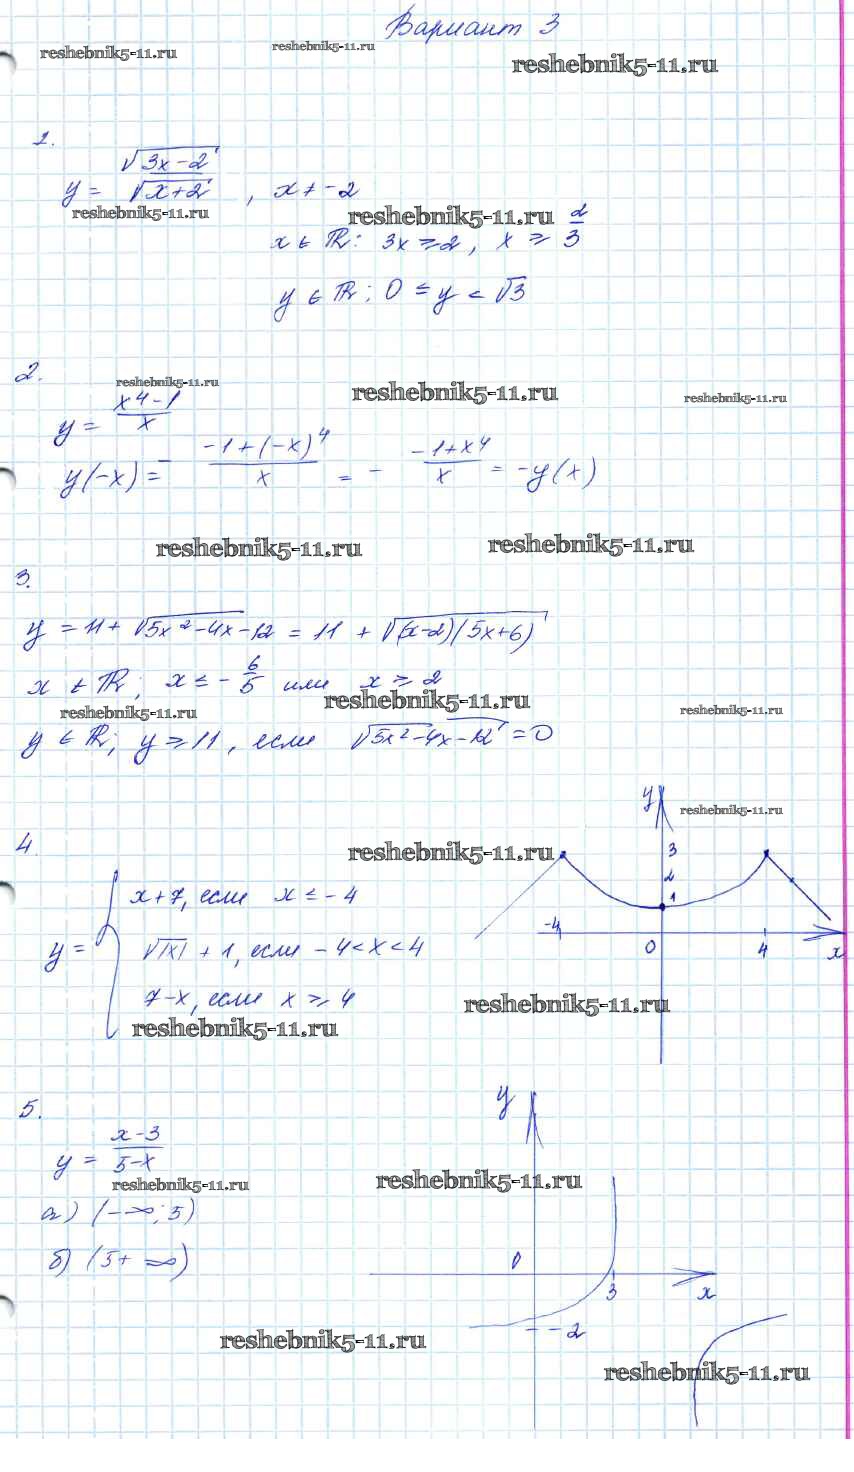 Вариант 3
reshebnik5-11.ru
reshebnik5-11.ru
reshebnik5-11.ru
1.
y = √(3x-2) / √(x+2) , x ≠ -2
reshebnik5-11.ru
reshebnik5-11.ru
x ∈ ℝ: 3x ≥ 2, x ≥ 2/3
y ∈ ℝ; 0 ≤ y < √3
2.
reshebnik5-11.ru
reshebnik5-11.ru
reshebnik5-11.ru
y = (x⁴-1)/x
y(-x) = - (-1+(-x)⁴)/x = - (-1+x⁴)/x = -y(x)
reshebnik5-11.ru
reshebnik5-11.ru
3.
y = 11 + √(5x²-4x-12) = 11 + √((x-2)(5x+6))
x ∈ ℝ; x ≤ - 6/5 или x ≥ 2
reshebnik5-11.ru
reshebnik5-11.ru
reshebnik5-11.ru
y ∈ ℝ; y ≥ 11, если √(5x²-4x-12) = 0
y
reshebnik5-11.ru
4.
reshebnik5-11.ru
3
2
1
-4
0
4
x
y = {
x+7, если x ≤ -4
√|x| + 1, если -4 < x < 4
7-x, если x ≥ 4
reshebnik5-11.ru
reshebnik5-11.ru
5.
y = (x-3)/(5-x)
reshebnik5-11.ru
reshebnik5-11.ru
y
а) (-∞; 5)
б) (5+ ∞)
0
3
x
-2
reshebnik5-11.ru
reshebnik5-11.ru